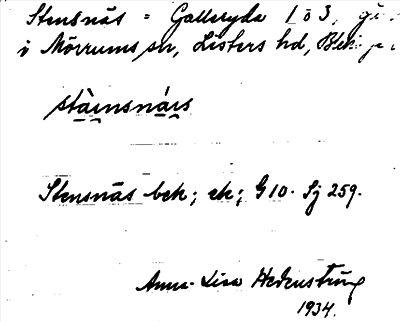 Stensnäs = Galleryda 1 o 3,
i Mörrums sn, Listers hd, Blek
stàinsnáis
Stensnäs bek; ek; G 10. Sj 259.
Anna-Lisa Hedenström
1934.